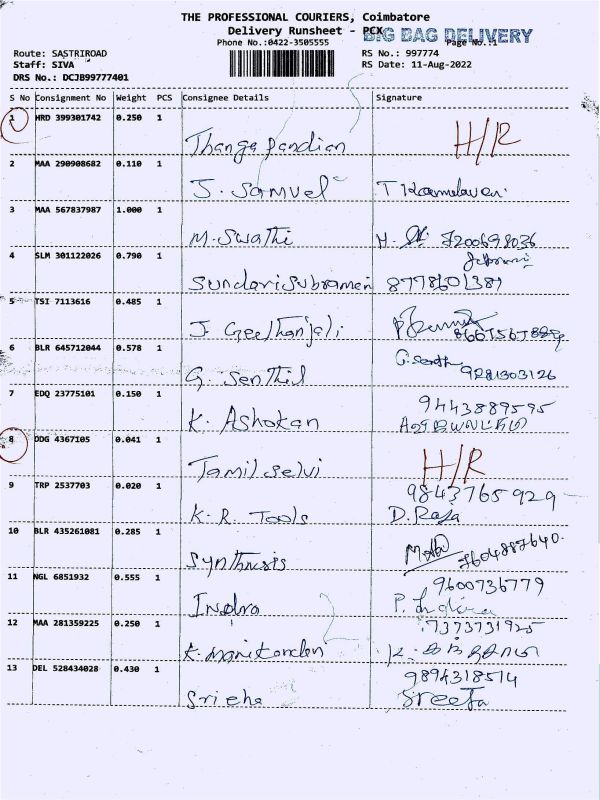 THE PROFESSIONAL COURIERS, Coimbatore
Delivery Runsheet - PCX
BIG BAG DELIVERY
Phone No.:0422-3505555
Page No.:1
Route: SASTRIROAD
RS No.: 997774
Staff: SIVA
RS Date: 11-Aug-2022
DRS No.: DCJB99777401
S No Consignment No Weight PCS Consignee Details Signature
1 HRD 399301742 0.250 1
Thanga pandian H/R
2 MAA 290908682 0.110 1
J. Samuel
3 MAA 567837987 1.000 1
M. Swathi H. 7200698036
4 SLM 301122026 0.790 1
Sundari Subramani 8778601381
5 TSI 7113616 0.485 1
J. Geethanjali
6 BLR 645712044 0.578 1
G. Senthil 9281303126
7 EDQ 23775101 0.150 1
9443889595
K. Ashokan
8 DDG 4367105 0.041 1
Tamil selvi H/R
9 TRP 2537703 0.020 1
9843765929
K. R. Tools D. Raja
10 BLR 435261081 0.285 1
Synthesis 7604887640
11 NGL 6851932 0.555 1
9600736779
Indra P. Indira
12 MAA 281359225 0.250 1
7373731925
K. Manikandan
13 DEL 528434028 0.430 1
9894318514
Sreeja